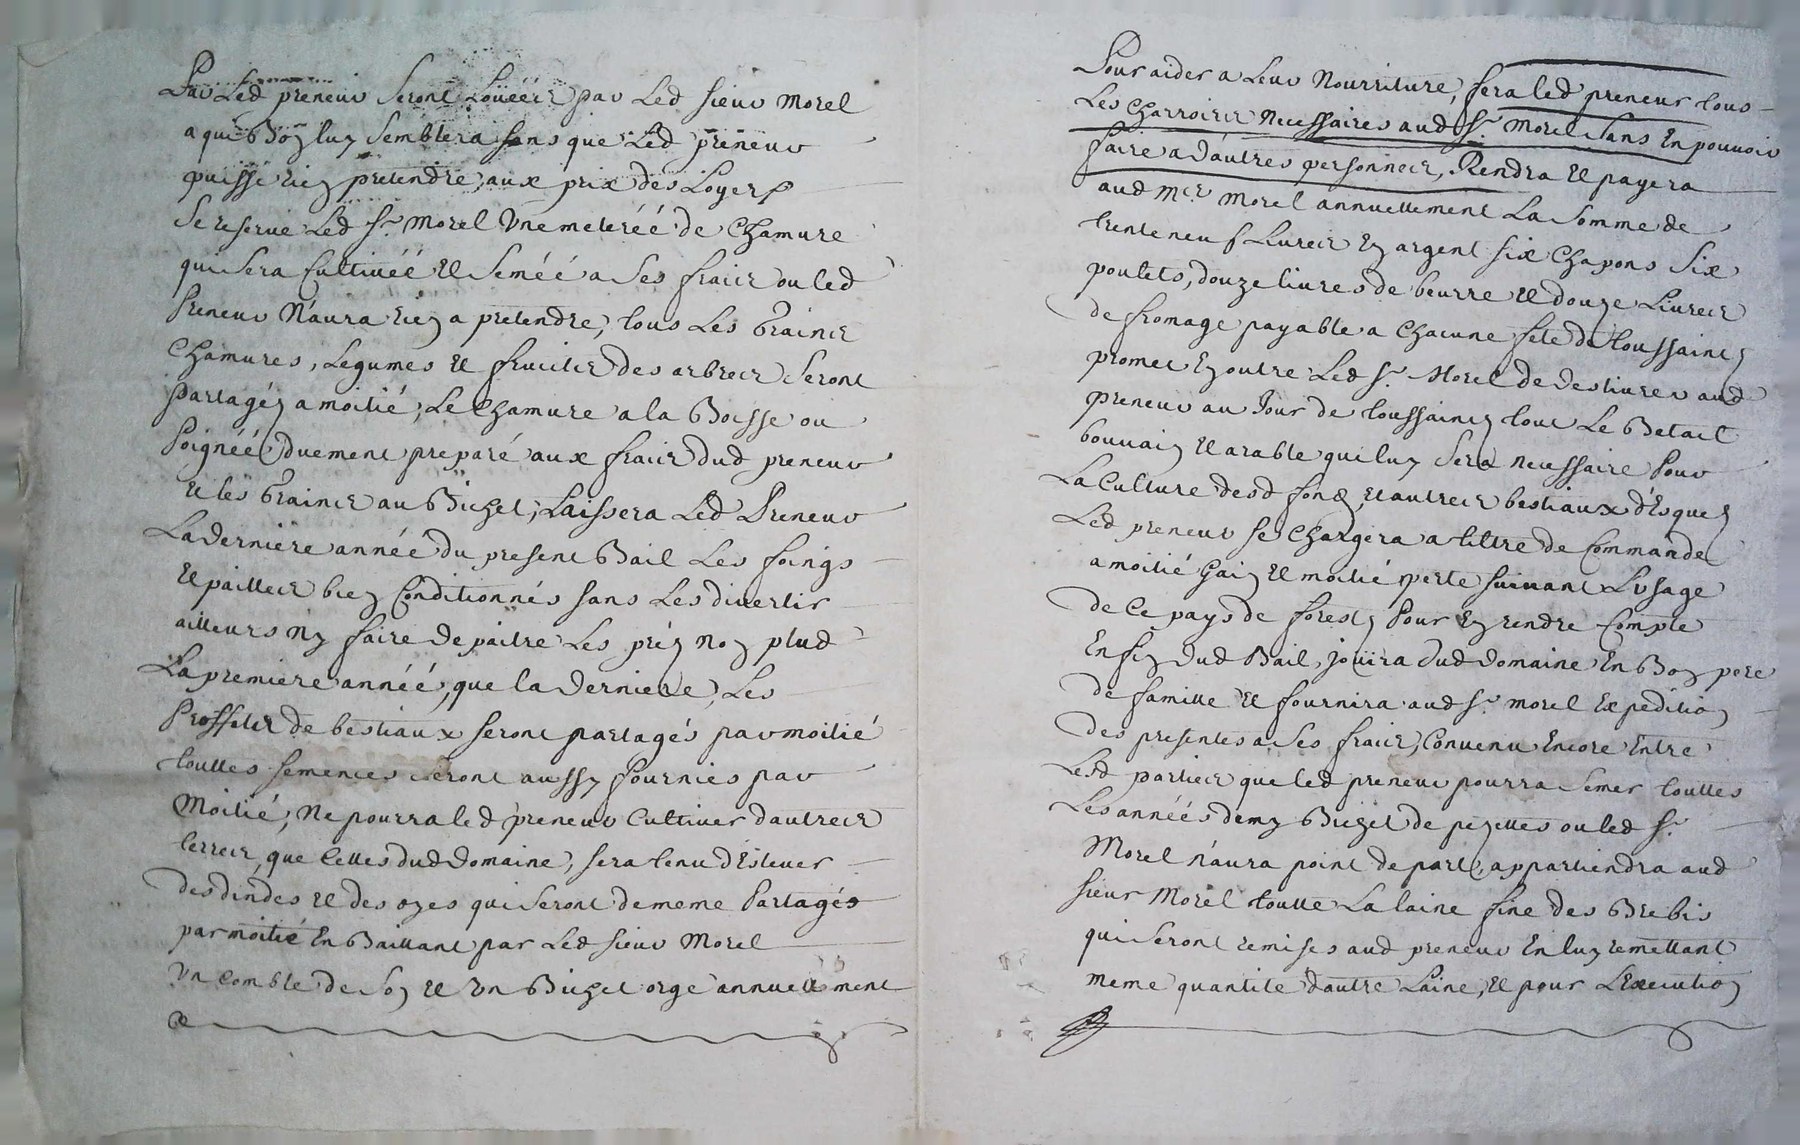 Par Led preneur seront Loüées par Led sieur Morel
a qui Bon luy semblera sans que Led preneur
puisse rien pretendre aux prix des Loyers
Se reserve Led Sr. Morel Une meterée de Chamure
qui sera Cultivéé et seméé a ses fraics ou led
Preneur N'aura rien a pretendre, tous Les Grains
Chamures, Legumes et fruicts des arbres seront
Partagés a moitié, Le Chamure a la Boisse ou
Poignéé duement preparé aux fraics dud preneur
et les Grains au Bichet, Laissera Led Preneur
La derniere année du present Bail Les foings
et pailles bien Conditionnés sans Les divertir
ailleurs Ny faire depaitre Les prés Non plud
La premiere annéé, que la derniere, Les
Proffits de bestiaux seront partagés par moitié
touttes semences seront aussy fournies par
Moitié, Ne pourra led preneur Cultiver dautres
terres, que Celles dud domaine, sera tenu d'Eslever
des dindes et des oyes qui seront de meme Partagés
par moitié En Baillant par Led sieur Morel
Un Comble de Son et Un Bichet orge annuellement
Pour aider a Leur Nourriture, fera led preneur tous
Les Charrois Necessaires aud Sr. Morel sans En pouvoir
faire a D'autres personnes, Rendra et payera
aud Mr. Morel annuellement La Somme de
trente neuf Livres En argent six Chapons Six
poulets, douze livres de beurre et douze Livres
de fromage payable a Chacune fete de toussaints
promet En outre Led Sr. Morel de deslivrer aud
preneur au Jour de toussaints tout Le Betail
bouvain et arable qui luy Sera necessaire Pour
La Culture desd fonds, et autres bestiaux d'Esquels
Led preneur se Chargera a tiltre de Commande
a moitié Gain et moitié perte suivant Lusage
de Ce pays de forests Pour En rendre Compte
En fin dud Bail, Joüira dud domaine En Bon pere
de famille et fournira aud Sr. morel Expedition
des presentes a Ses fraics, Convenu Encore Entre
Lesd parties que led preneur pourra Semer touttes
Les annéés demy Bichet de pezettes ou led Sr.
Morel n'aura point de part, appartiendra aud
sieur Morel toutte La laine fine des Brebis
qui seront remises aud preneur En luy remettant
meme quantite dautre Laine, et pour L'Execution